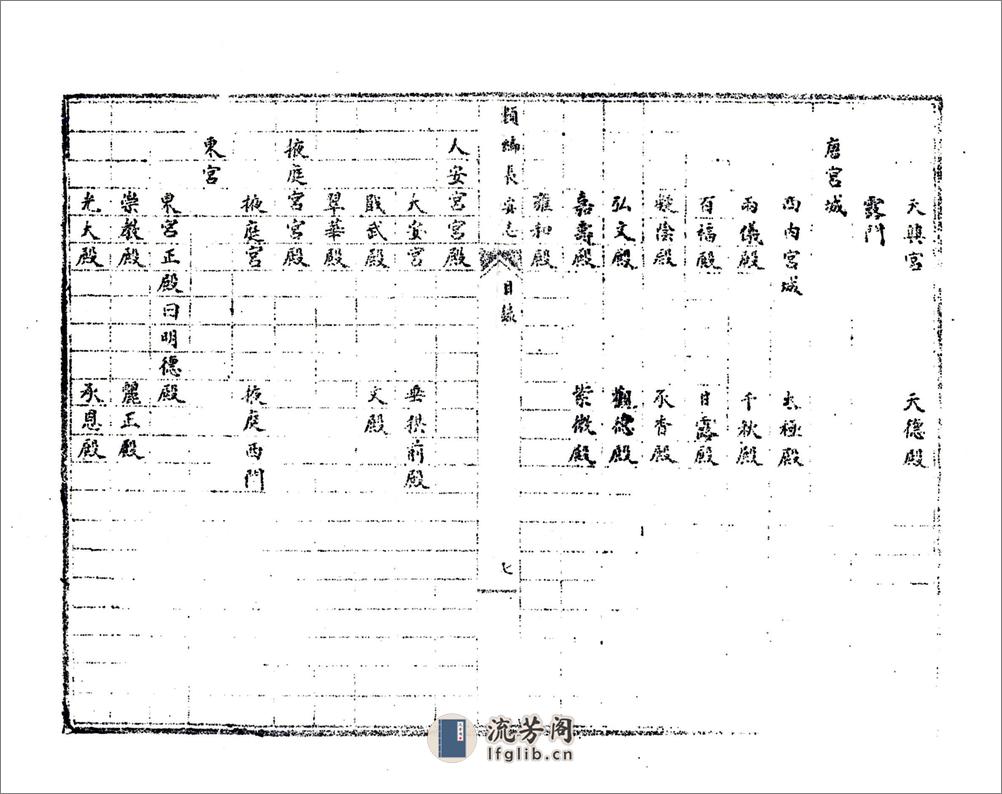 天興宮 天德殿
露門
唐宮城
西內宮城 太極殿
兩儀殿 千秋殿
百福殿 甘露殿
凝陰殿 承香殿
弘文殿 觀德殿
嘉壽殿 紫微殿
雍和殿
類編長安志 目錄 七
人安宮宮殿
大安宮 垂拱前殿
戢武殿 文殿
翠華殿
掖庭宮宮殿
掖庭宮 掖庭西門
東宮
東宮正殿曰明德殿
崇教殿 麗正殿
光大殿 承恩殿
流芳阁
lfglib.cn